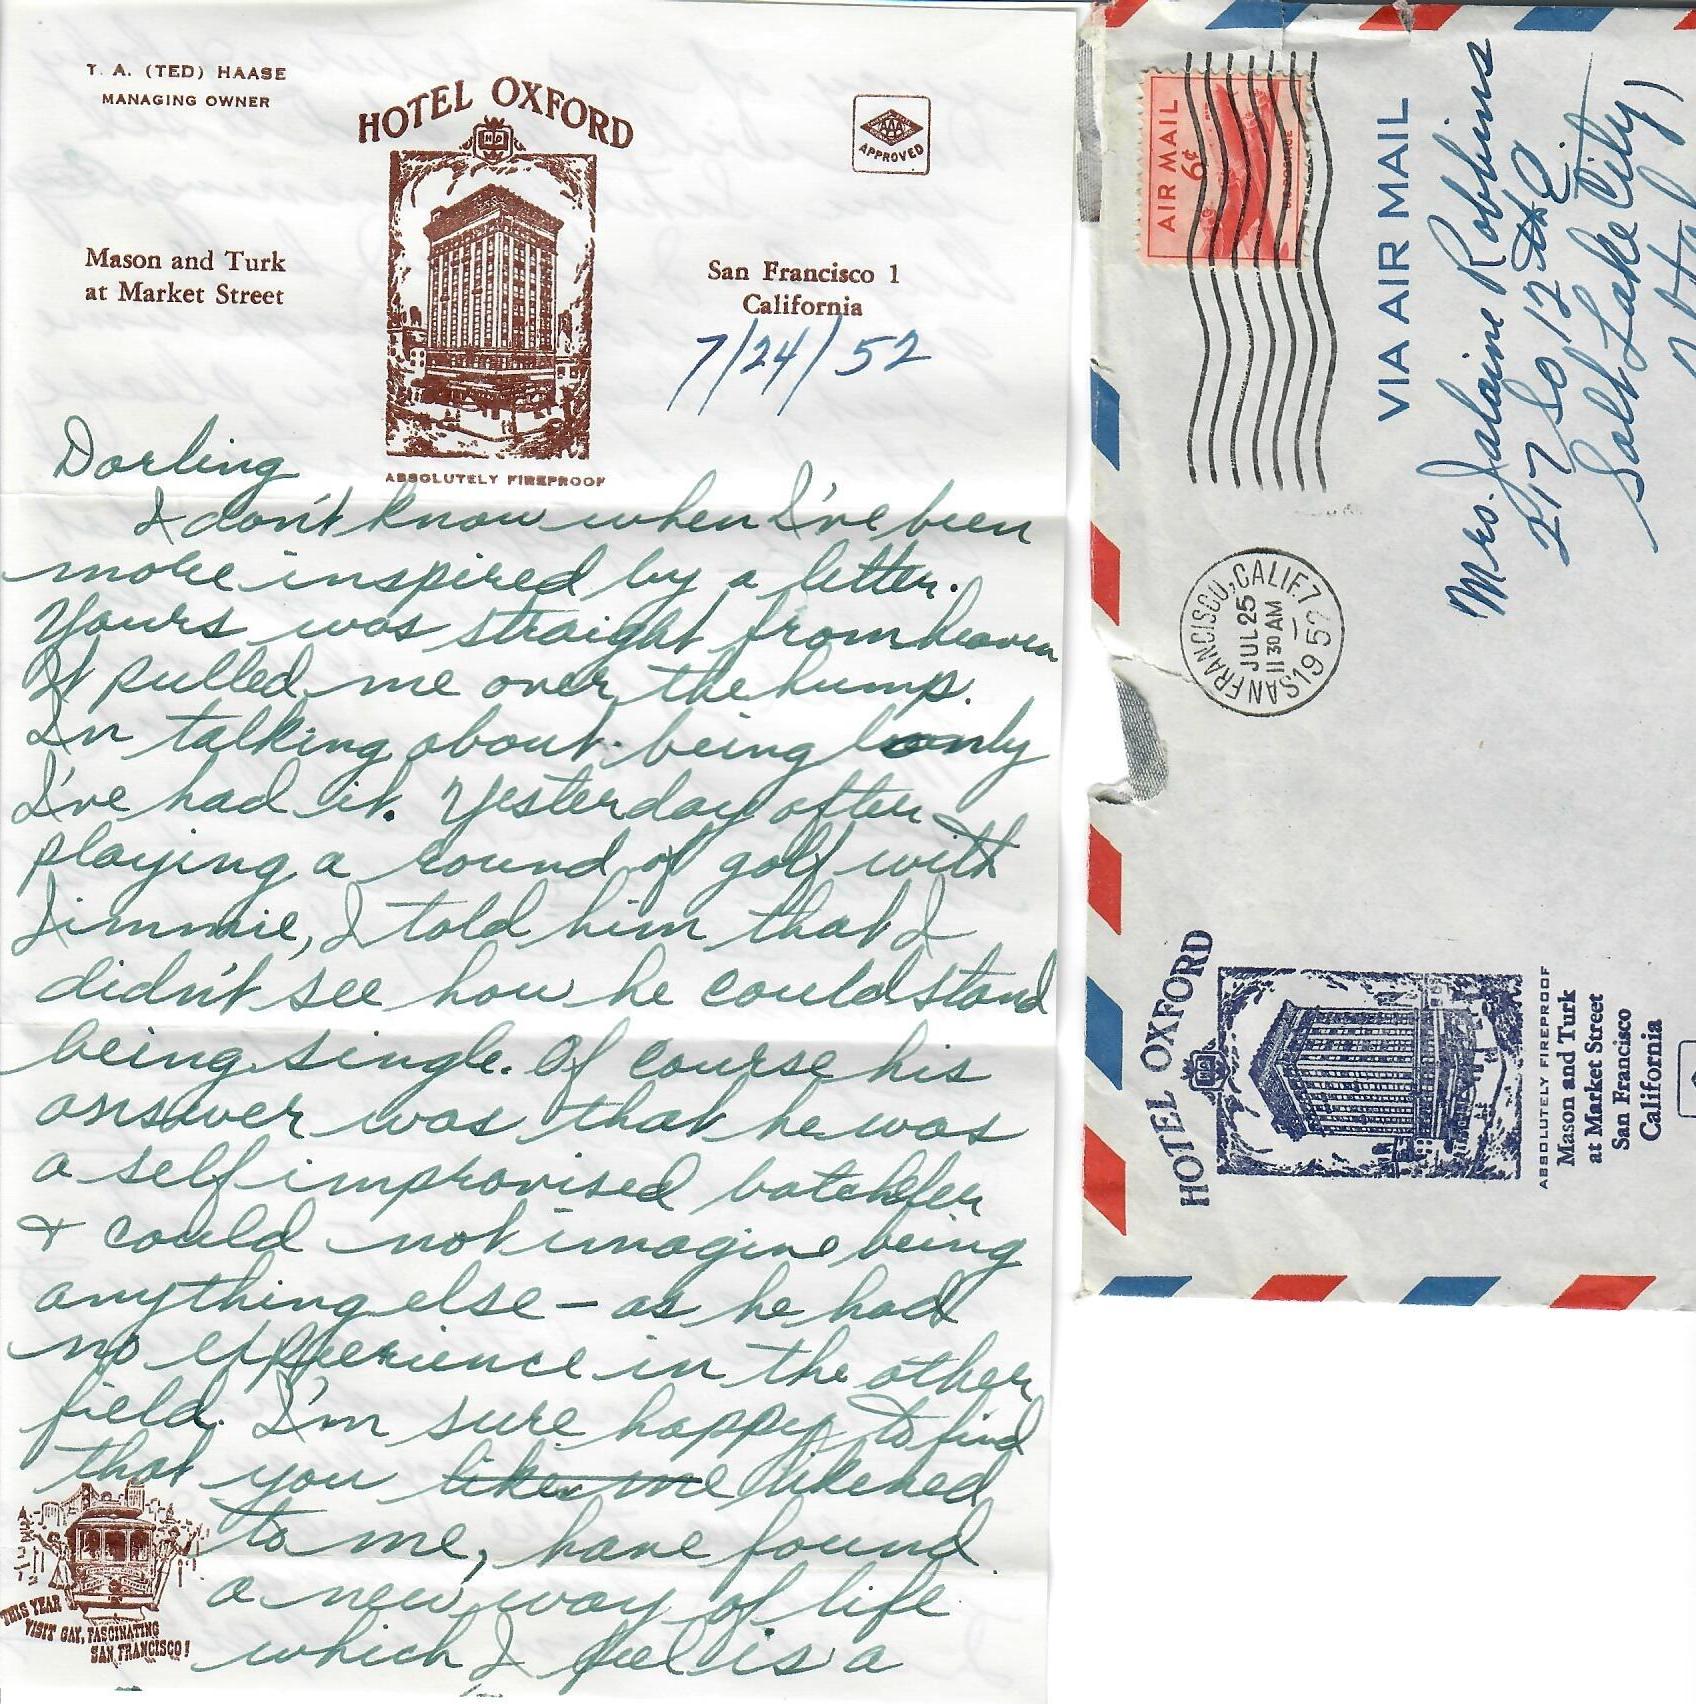 T. A. (TED) HAASE
MANAGING OWNER
HOTEL OXFORD
HO
AAA
APPROVED
Mason and Turk
at Market Street
San Francisco 1
California
7/24/52
ABSOLUTELY FIREPROOF
Darling
I don't know when I've been
more inspired by a letter.
Yours was straight from heaven
It pulled me over the hump.
In talking about being lonly
I've had it. Yesterday after
playing a round of golf with
Jimmie, I told him that I
didn't see how he could stand
being single. Of course his
answer was that he was
a self improvised batchler
& could not imagine being
anything else – as he had
no experience in the other
field. I'm sure happy to find
that you like me likened
to me, have found
a new way of life
which I feel is a
THIS YEAR
VISIT GAY, FASCINATING
SAN FRANCISCO!
AIR MAIL
6¢
VIA AIR MAIL
SAN FRANCISCO, CALIF. 7
JUL 25
11 30 AM
1952
Mrs. Jalaine Robins
217 So 12th E
Salt Lake City,
Utah
HOTEL OXFORD
HO
ABSOLUTELY FIREPROOF
Mason and Turk
at Market Street
San Francisco
California